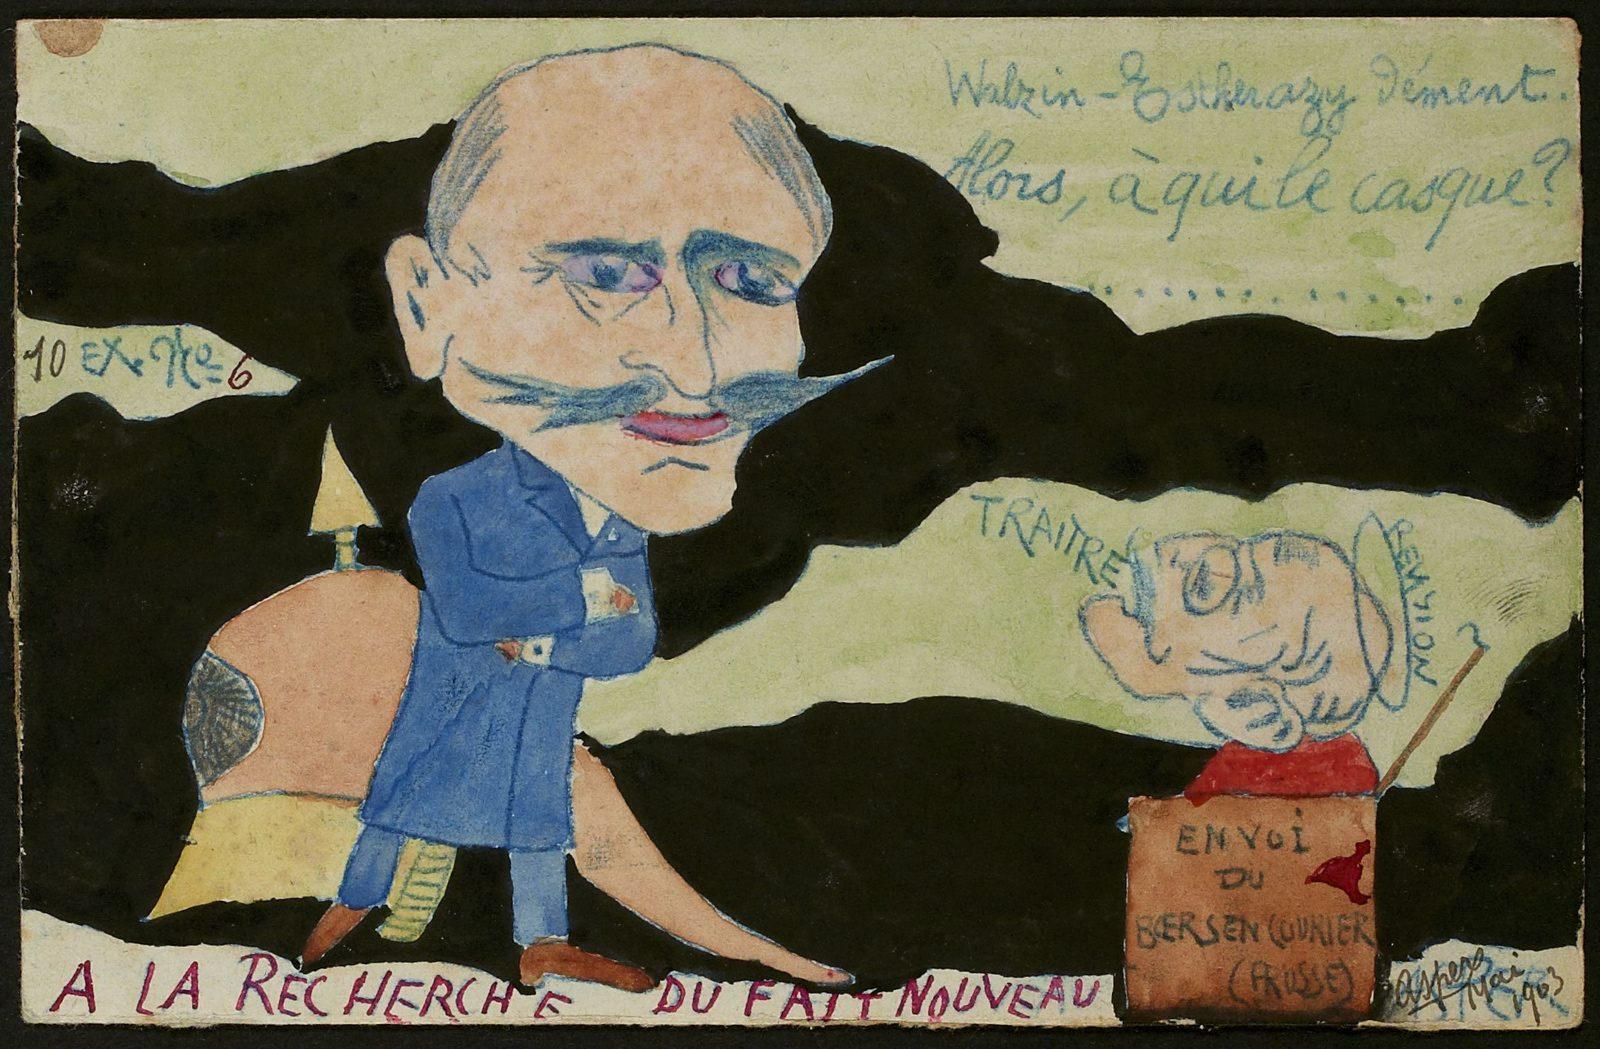 Walzin-Estherazy dément.
Alors, à qui le casque?
10 EX. No= 6
TRAITRE
REVISION
EN VOI
DU
BŒRSEN COURIER
(PRUSSE)
A LA RECHERCHE DU FAIT NOUVEAU
Mai
1903